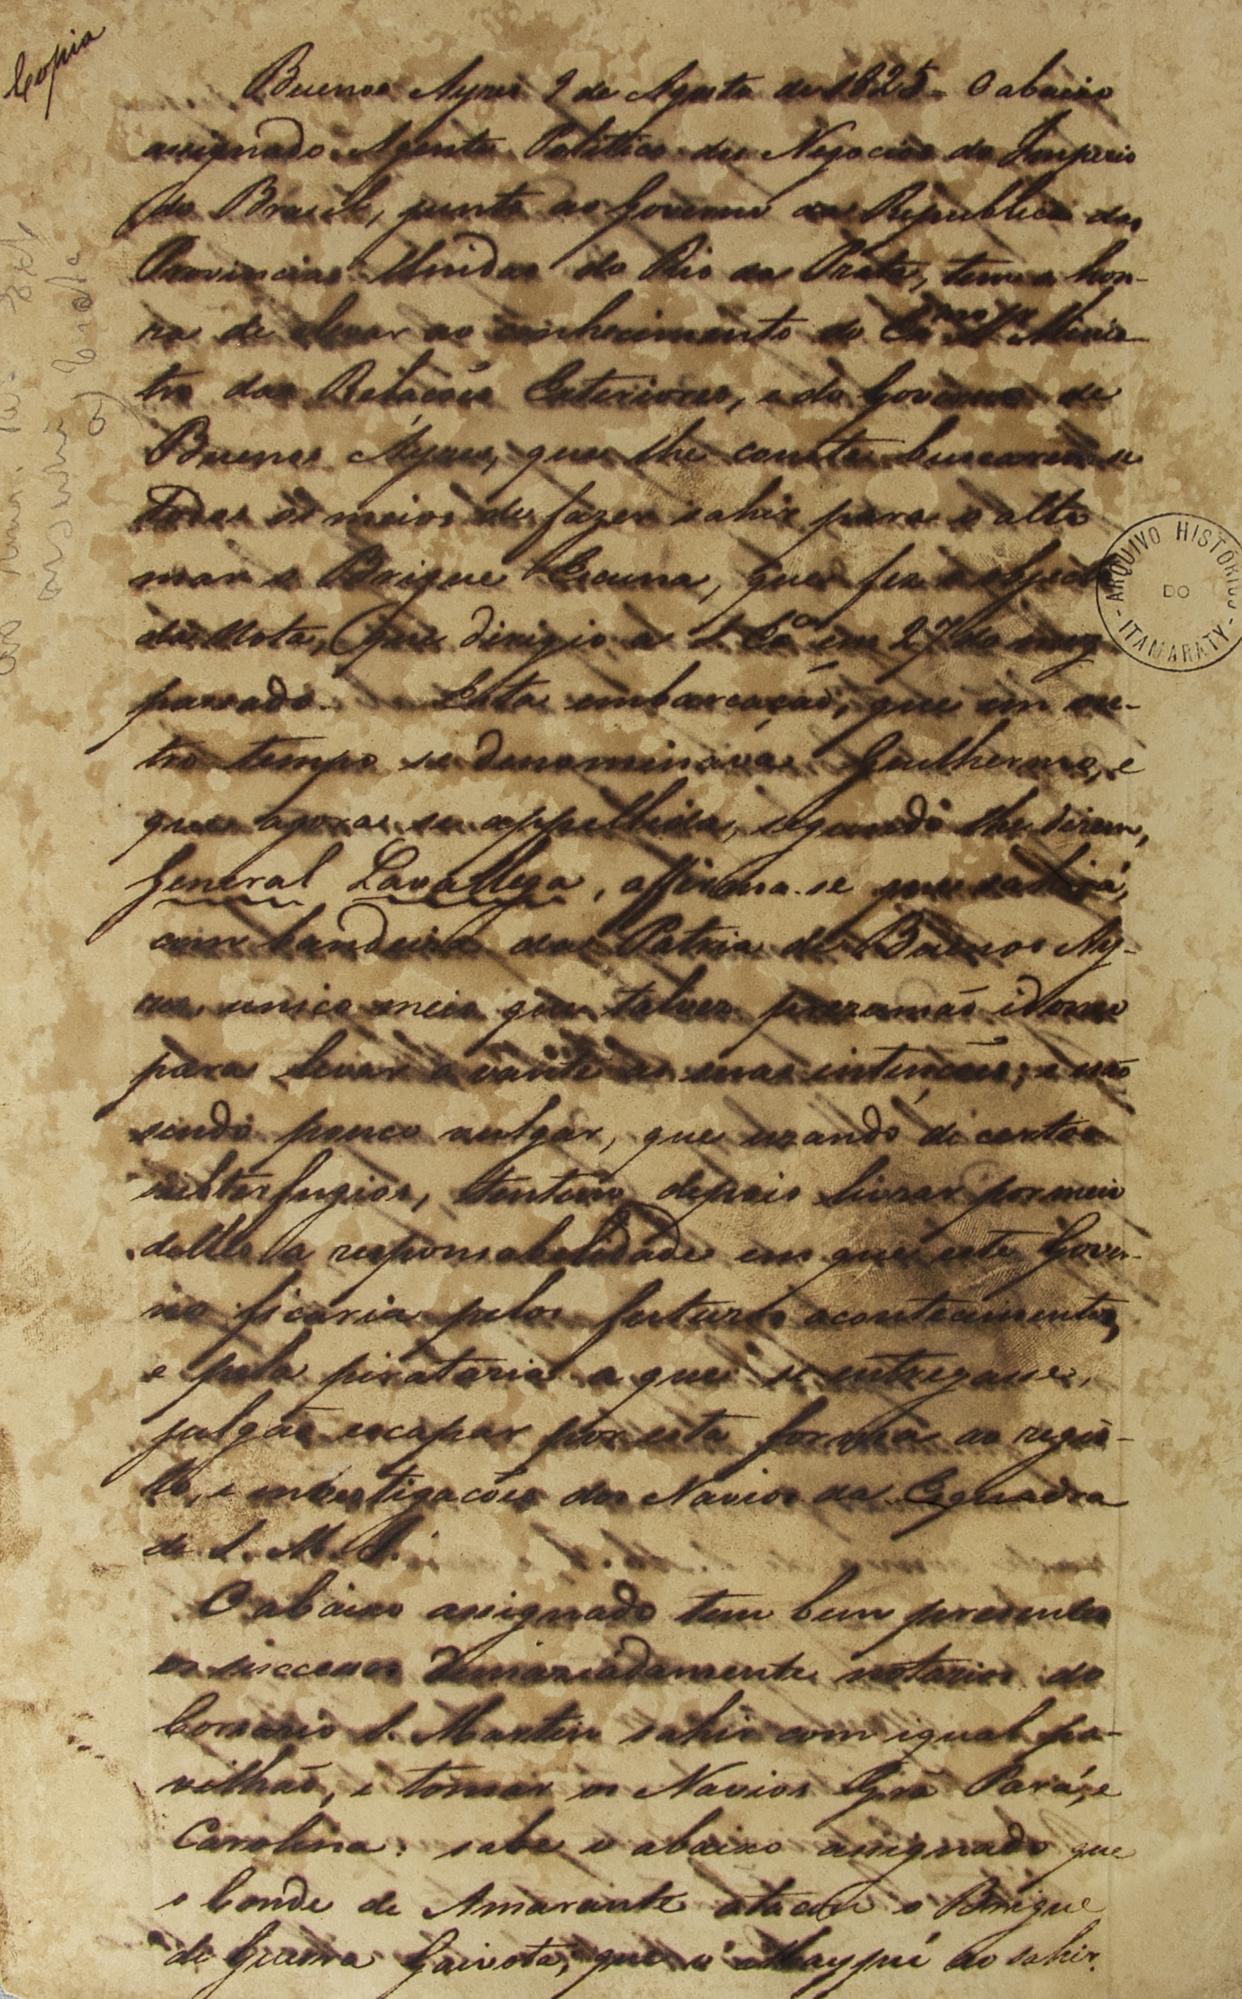 Copia
Buenos Ayres 2 de Agosto de 1825 – O abaixo
assignado Agente Politico dos Negocios do Imperio
do Brasil, junto ao Governo da Republica das
Provincias Unidas do Rio da Prata, tem a hon-
ra de elevar ao conhecimento do Exmo Sr Minis-
tro das Relacões Exteriores, e do Governo de
Buenos Ayres, que lhe consta buscarem-se
todos os meios de fazer sahir para o alto
mar o Brigue Escuna, que fez o objecto
da Nota, que dirigio a S. Exca em 27 do mez
passado. Esta embarcação, que em ou-
tro tempo se denominava Guilherme, e
que agora se appellida, segundo lhe dizem,
General Lavallega, affirma-se que sahirá,
com bandeira da Patria de Buenos Ay-
res, unico meio que talvez prezumão idoneo
para levar a vante as suas intencões; e não
sendo pouco vulgar, que uzando de certos
subterfugios, tentem depois livrar por meio
delles a responsabelidade em que este Gover-
no ficaria pelos futuros acontecimentos,
e pela pirataria a que se entregasse,
julgão escapar por esta forma ao regis-
to, e investigacões dos Navios da Esquadra
de S. M. I.
O abaixo assignado tem bem presentes
os successos demaziadamente notorios do
Corsario S. Martin sahir com igual pa-
vilhão, e tomar os Navios Grã Pará, e
Carolina: sabe o abaixo assignado que
o Conde de Amarante atacou o Brigue
de Guerra Gaivota, que o ao sahir
ARQUIVO HISTÓRICO
DO
- ITAMARATY -